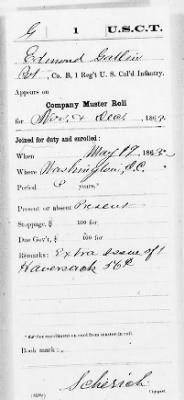 G | 1 | U.S.C.T.
Edmond Gallin
Pvt, Co. B, 1 Reg't U. S. Col'd Infantry.
Appears on
Company Muster Roll
for Nov. & Dec., 186
Joined for duty and enrolled:
When May 19, 1863
Where Washington, D.C.
Period 3 years.*
Present or absent Present
Stoppage, $ 100 for
Due Gov't, $ 100 for
Remarks: Extra issue of 1
Haversack 56¢
*See enrollment on card from muster-in roll.
Book mark:
Copyist.